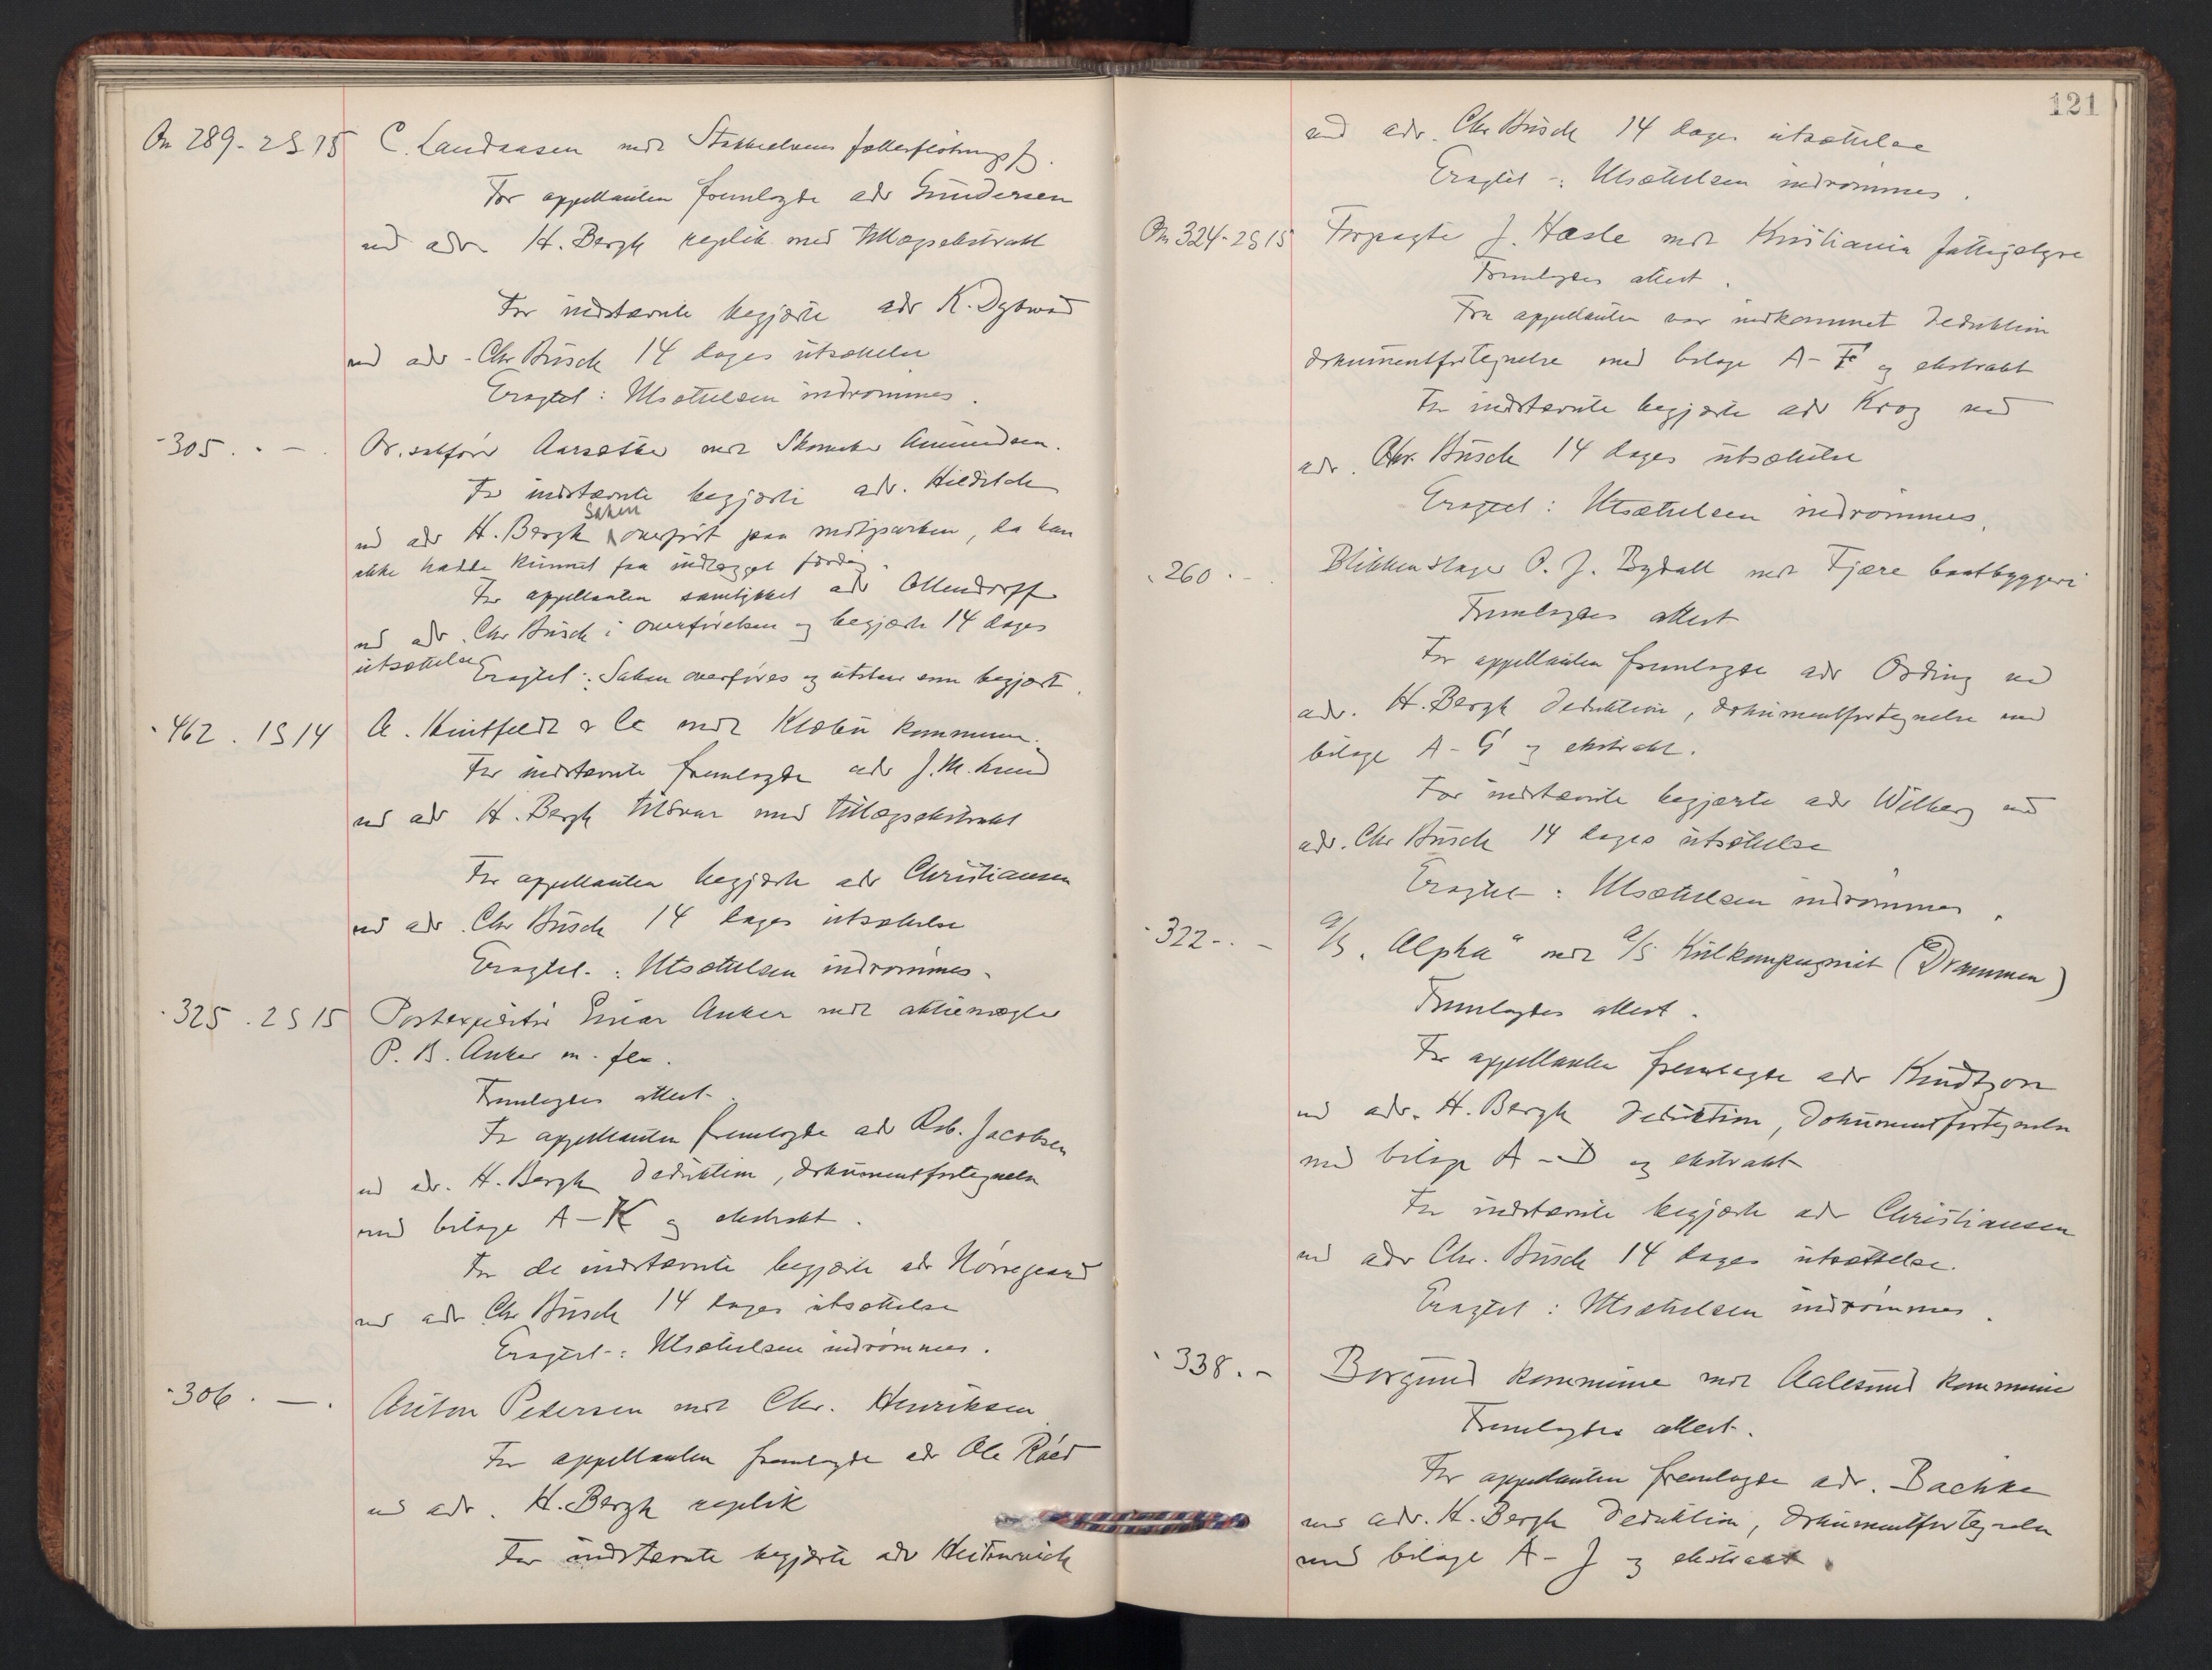 On 289 - 2 S 15 C. Landaasen mot Stokkeelvens fællesfløtningsf.
For appellanten fremlagde adv Gundersen
ved adv H. Bergh replik med tillægsekstrakt
For indstævnte begjærte adv K. Dybwad
ved adv. Chr Busch 14 dages utsættelse
Eragtet: Utsættelsen indrømmes.
- 305. - — Or. sakfører Aarsæther mot Skomaker Amundsen.
For indstævnte begjærte adv. Hilditch
ved adv H. Bergh saken overført paa motparten, da han
ikke hadde kunnet faa indlægget færdig.
For appellanten samtykket adv Ollendorff
ved adv. Chr Busch i overførelsen og begjærte 14 dages
utsættelse
Eragtet: Saken overføres og utstaar som begjært.
- 462 . 1 S 14 A. & Co mot Klæbu kommune.
For indstævnte fremlagde adv J. M. Lund
ved adv H. Bergh tilsvar med tillægsekstrakt
For appellanten begjærte adv Christiansen
ved adv. Chr Busch 14 dages utsættelse
Eragtet: Utsættelsen indrømmes.
- 325 . 2 S 15 Postexpeditør Einar Anker mot aktiemægler
P. B. Anker m. fler.
Fremlagdes attest.
For appellanten fremlagde adv Rob. Jacobsen
ved adv. H. Bergh deduktion, dokumentfortegnelse
med bilage A - K og ekstrakt.
For de indstævnte begjærte adv Nørregaard
ved adv Chr Busch 14 dages utsættelse
Eragtet: Utsættelsen indrømmes.
- 306 . — . Anton Pedersen mot Chr. Henriksen
For appellanten fremlagde adv Ole Røed
ved adv. H. Bergh replik
For indstævnte begjærte adv
121
ved adv. Chr Busch 14 dages utsættelse
Eragtet: Utsættelsen indrømmes.
On 324 - 2 S 15 Forpagter J. Hasle mot Kristiania fattigstyre
Fremlagdes attest.
Fra appellanten var indkommet deduktion
dokumentfortegnelse med bilage A - F og ekstrakt
For indstævnte begjærte adv Krog ved
adv. Chr. Busch 14 dages utsættelse
Eragtet: Utsættelsen indrømmes.
- 260 . - Blikkenslager O. J. Bydall mot Fjære baatbyggeri
Fremlagdes attest
For appellanten fremlagde adv Ording ved
adv. H. Bergh deduktion, dokumentfortegnelse med
bilage A - G og ekstrakt.
For indstævnte begjærte adv Wilberg ved
adv. Chr Busch 14 dages utsættelse
Eragtet: Utsættelsen indrømmes.
- 322 - . - A/S "Alpha" mot A/S Kulkompagniet (Drammen)
Fremlagdes attest.
For appellanten fremlagde adv Knudtzon
ved adv. H. Bergh deduktion, dokumentfortegnelse
med bilage A - D og ekstrakt
For indstævnte begjærte adv Christiansen
ved adv Chr. Busch 14 dages utsættelse.
Eragtet: Utsættelsen indrømmes.
- 338 . - Borgund kommune mot Aalesund kommune
Fremlagdes attest.
For appellanten fremlagde adv. Bachke
ved adv. H. Bergh deduktion, dokumentfortegnelse
med bilage A - J og ekstrakt.